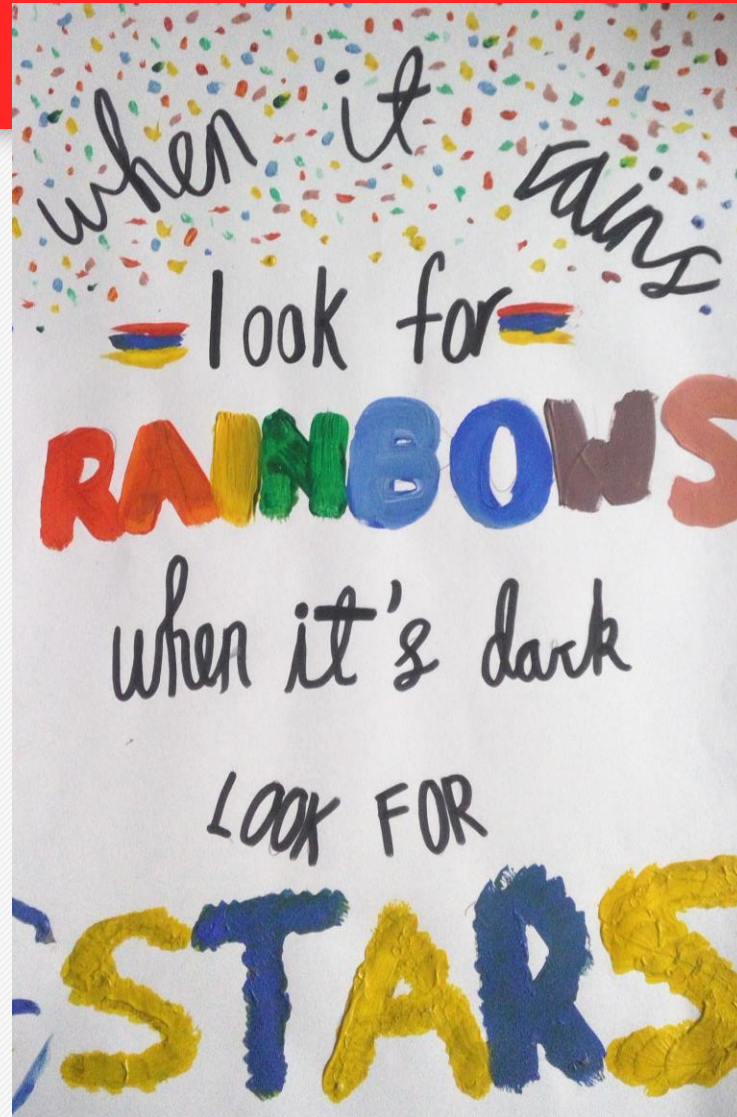 when it rains
look for
RAINBOWS
when it's dark
LOOK FOR
STARS